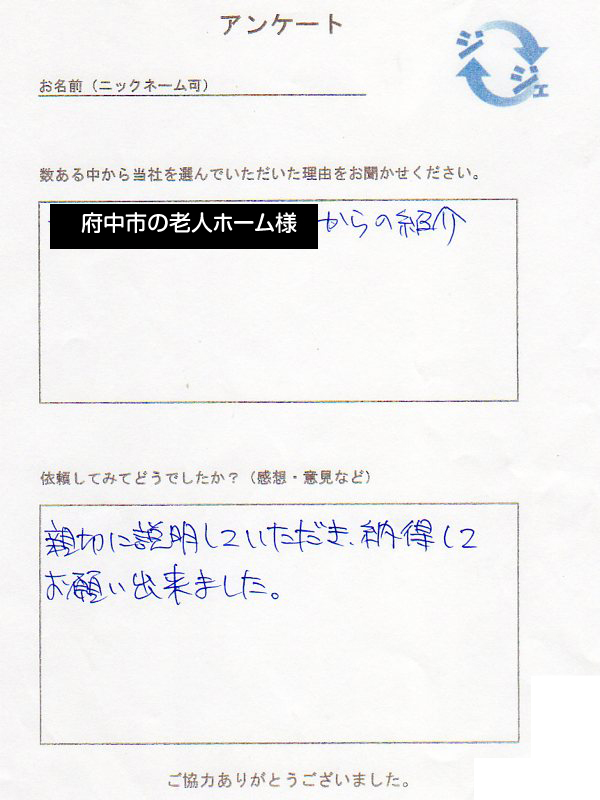 アンケート
ジ
ジェ
お名前（ニックネーム可）
数ある中から当社を選んでいただいた理由をお聞かせください。
府中市の老人ホーム様からの紹介
依頼してみてどうでしたか？（感想・意見など）
親切に説明していただき、納得して
お願い出来ました。
ご協力ありがとうございました。